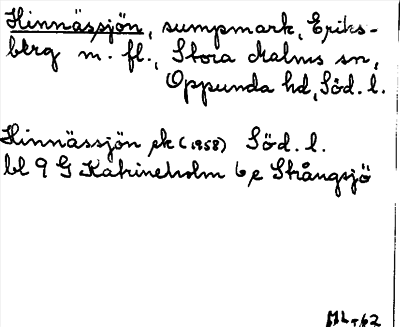 Hinnässjön, sumpmark, Eriks-
berg m. fl., Stora Malms sn,
Oppunda hd, Söd. l.
Hinnässjön ek (1958) Söd. l.
bl 9 G Katrineholm 6 e Strångsjö
ML-62